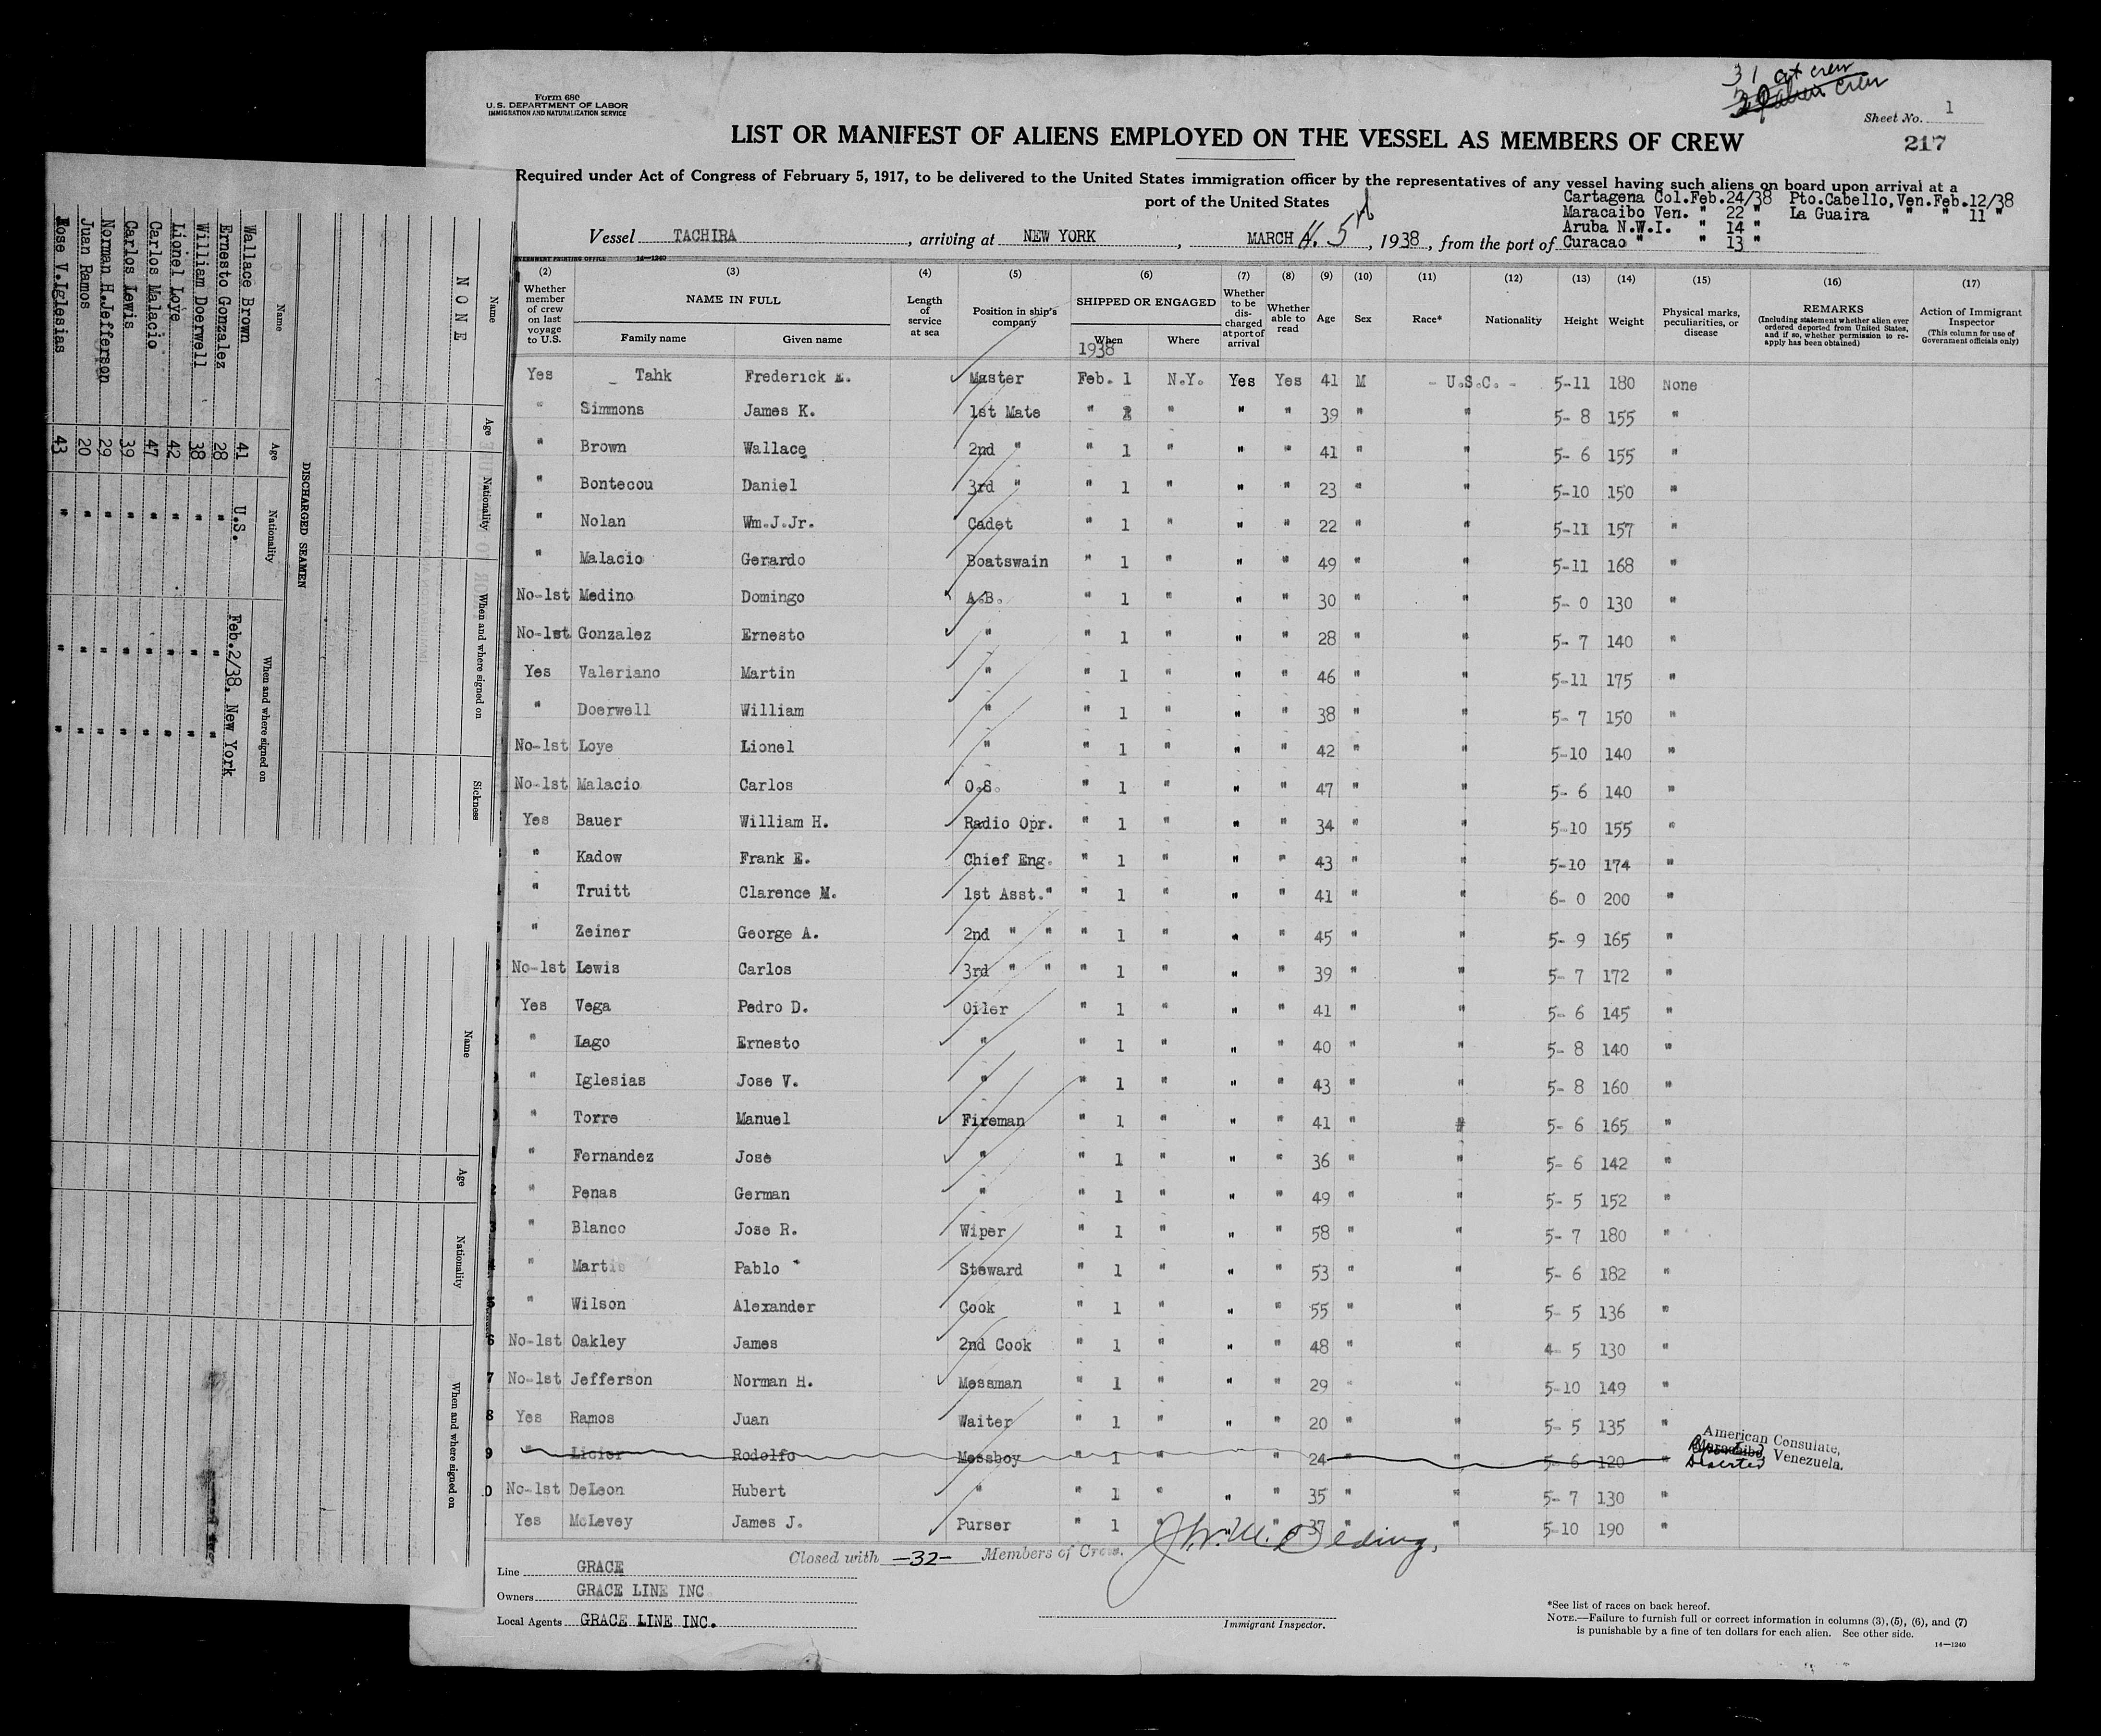 31 at crew
30 alien crew
Form 680
U.S. DEPARTMENT OF LABOR
IMMIGRATION AND NATURALIZATION SERVICE
Sheet No. 1
217
LIST OR MANIFEST OF ALIENS EMPLOYED ON THE VESSEL AS MEMBERS OF CREW
Required under Act of Congress of February 5, 1917, to be delivered to the United States immigration officer by the representatives of any vessel having such aliens on board upon arrival at a
port of the United States
Cartagena Col.Feb.24/38 Pto.Cabello,Ven.Feb.12/38
Maracaibo Ven. " 22 " La Guaira " " 11 "
Aruba N.W.I. " 14 "
Vessel TACHIRA, arriving at NEW YORK, MARCH 4. 5, 1938, from the port of Curacao " " 13 "
GOVERNMENT PRINTING OFFICE 14—1240
(2) (3) (4) (5) (6) (7) (8) (9) (10) (11) (12) (13) (14) (15) (16) (17)
Whether member of crew on last voyage to U.S.
NAME IN FULL
Family name
Given name
Length of service at sea
Position in ship's company
SHIPPED OR ENGAGED
When
Where
1938
Whether to be discharged at port of arrival
Whether able to read
Age
Sex
Race*
Nationality
Height
Weight
Physical marks, peculiarities, or disease
REMARKS
(Including statement whether alien ever ordered deported from United States, and if so, whether permission to reapply has been obtained)
Action of Immigrant Inspector
(This column for use of Government officials only)
Yes Tahk Frederick E. Master Feb. 1 N.Y. Yes Yes 41 M - U.S.C. - 5-11 180 None
" Simmons James K. 1st Mate " 2 " " " 39 " " 5- 8 155 "
" Brown Wallace 2nd " " 1 " " " 41 " " 5- 6 155 "
" Bontecou Daniel 3rd " " 1 " " " 23 " " 5-10 150 "
" Nolan Wm.J.Jr. Cadet " 1 " " " 22 " " 5-11 157 "
" Malacio Gerardo Boatswain " 1 " " " 49 " " 5-11 168 "
No-1st Medino Domingo A.B. " 1 " " " 30 " " 5- 0 130 "
No-1st Gonzalez Ernesto " " 1 " " " 28 " " 5- 7 140 "
Yes Valeriano Martin " " 1 " " " 46 " " 5-11 175 "
" Doerwell William " " 1 " " " 38 " " 5- 7 150 "
No-1st Loye Lionel " " 1 " " " 42 " " 5-10 140 "
No-1st Malacio Carlos O.S. " 1 " " " 47 " " 5- 6 140 "
Yes Bauer William H. Radio Opr. " 1 " " " 34 " " 5-10 155 "
" Kadow Frank E. Chief Eng. " 1 " " " 43 " " 5-10 174 "
" Truitt Clarence M. 1st Asst." " 1 " " " 41 " " 6- 0 200 "
" Zeiner George A. 2nd " " " 1 " " " 45 " " 5- 9 165 "
No-1st Lewis Carlos 3rd " " " 1 " " " 39 " " 5- 7 172 "
Yes Vega Pedro D. Oiler " 1 " " " 41 " " 5- 6 145 "
" Lago Ernesto " " 1 " " " 40 " " 5- 8 140 "
" Iglesias Jose V. " " 1 " " " 43 " " 5- 8 160 "
" Torre Manuel Fireman " 1 " " " 41 " # 5- 6 165 "
" Fernandez Jose " " 1 " " " 36 " " 5- 6 142 "
" Penas German " " 1 " " " 49 " " 5- 5 152 "
" Blanco Jose R. Wiper " 1 " " " 58 " " 5- 7 180 "
" Martis Pablo Steward " 1 " " " 53 " " 5- 6 182 "
" Wilson Alexander Cook " 1 " " " 55 " " 5- 5 136 "
No-1st Oakley James 2nd Cook " 1 " " " 48 " " 4- 5 130 "
No-1st Jefferson Norman H. Messman " 1 " " " 29 " " 5-10 149 "
Yes Ramos Juan Waiter " 1 " " " 20 " " 5- 5 135 "
" Licier Rodolfo Messboy " 1 " " 24 " " 5- 6 120 "
American Consulate,
Maracaibo, Venezuela.
Deserted
No-1st DeLeon Hubert " " 1 " " " 35 " " 5- 7 130 "
Yes McLevey James J. Purser " 1 " " " 37 " " 5-10 190 "
Closed with -32- Members of Crew.
Line GRACE
Owners GRACE LINE INC
Local Agents GRACE LINE INC.
Immigrant Inspector.
*See list of races on back hereof.
NOTE.—Failure to furnish full or correct information in columns (3), (5), (6), and (7)
is punishable by a fine of ten dollars for each alien. See other side.
14—1240
Name Age Nationality When and where signed on Sickness
NONE
DISCHARGED SEAMEN
Name Age Nationality When and where signed on
Wallace Brown 41 U.S. Feb.2/38. New York
Ernesto Gonzalez 28 " " "
William Doerwell 38 " " "
Lionel Loye 42 " " "
Carlos Malacio 47 " " "
Carlos Lewis 39 " " "
Norman H.Jefferson 29 " " "
Juan Ramos 20 " " "
Rose V.Iglesias 43 " " "
Name Age Nationality When and where signed on